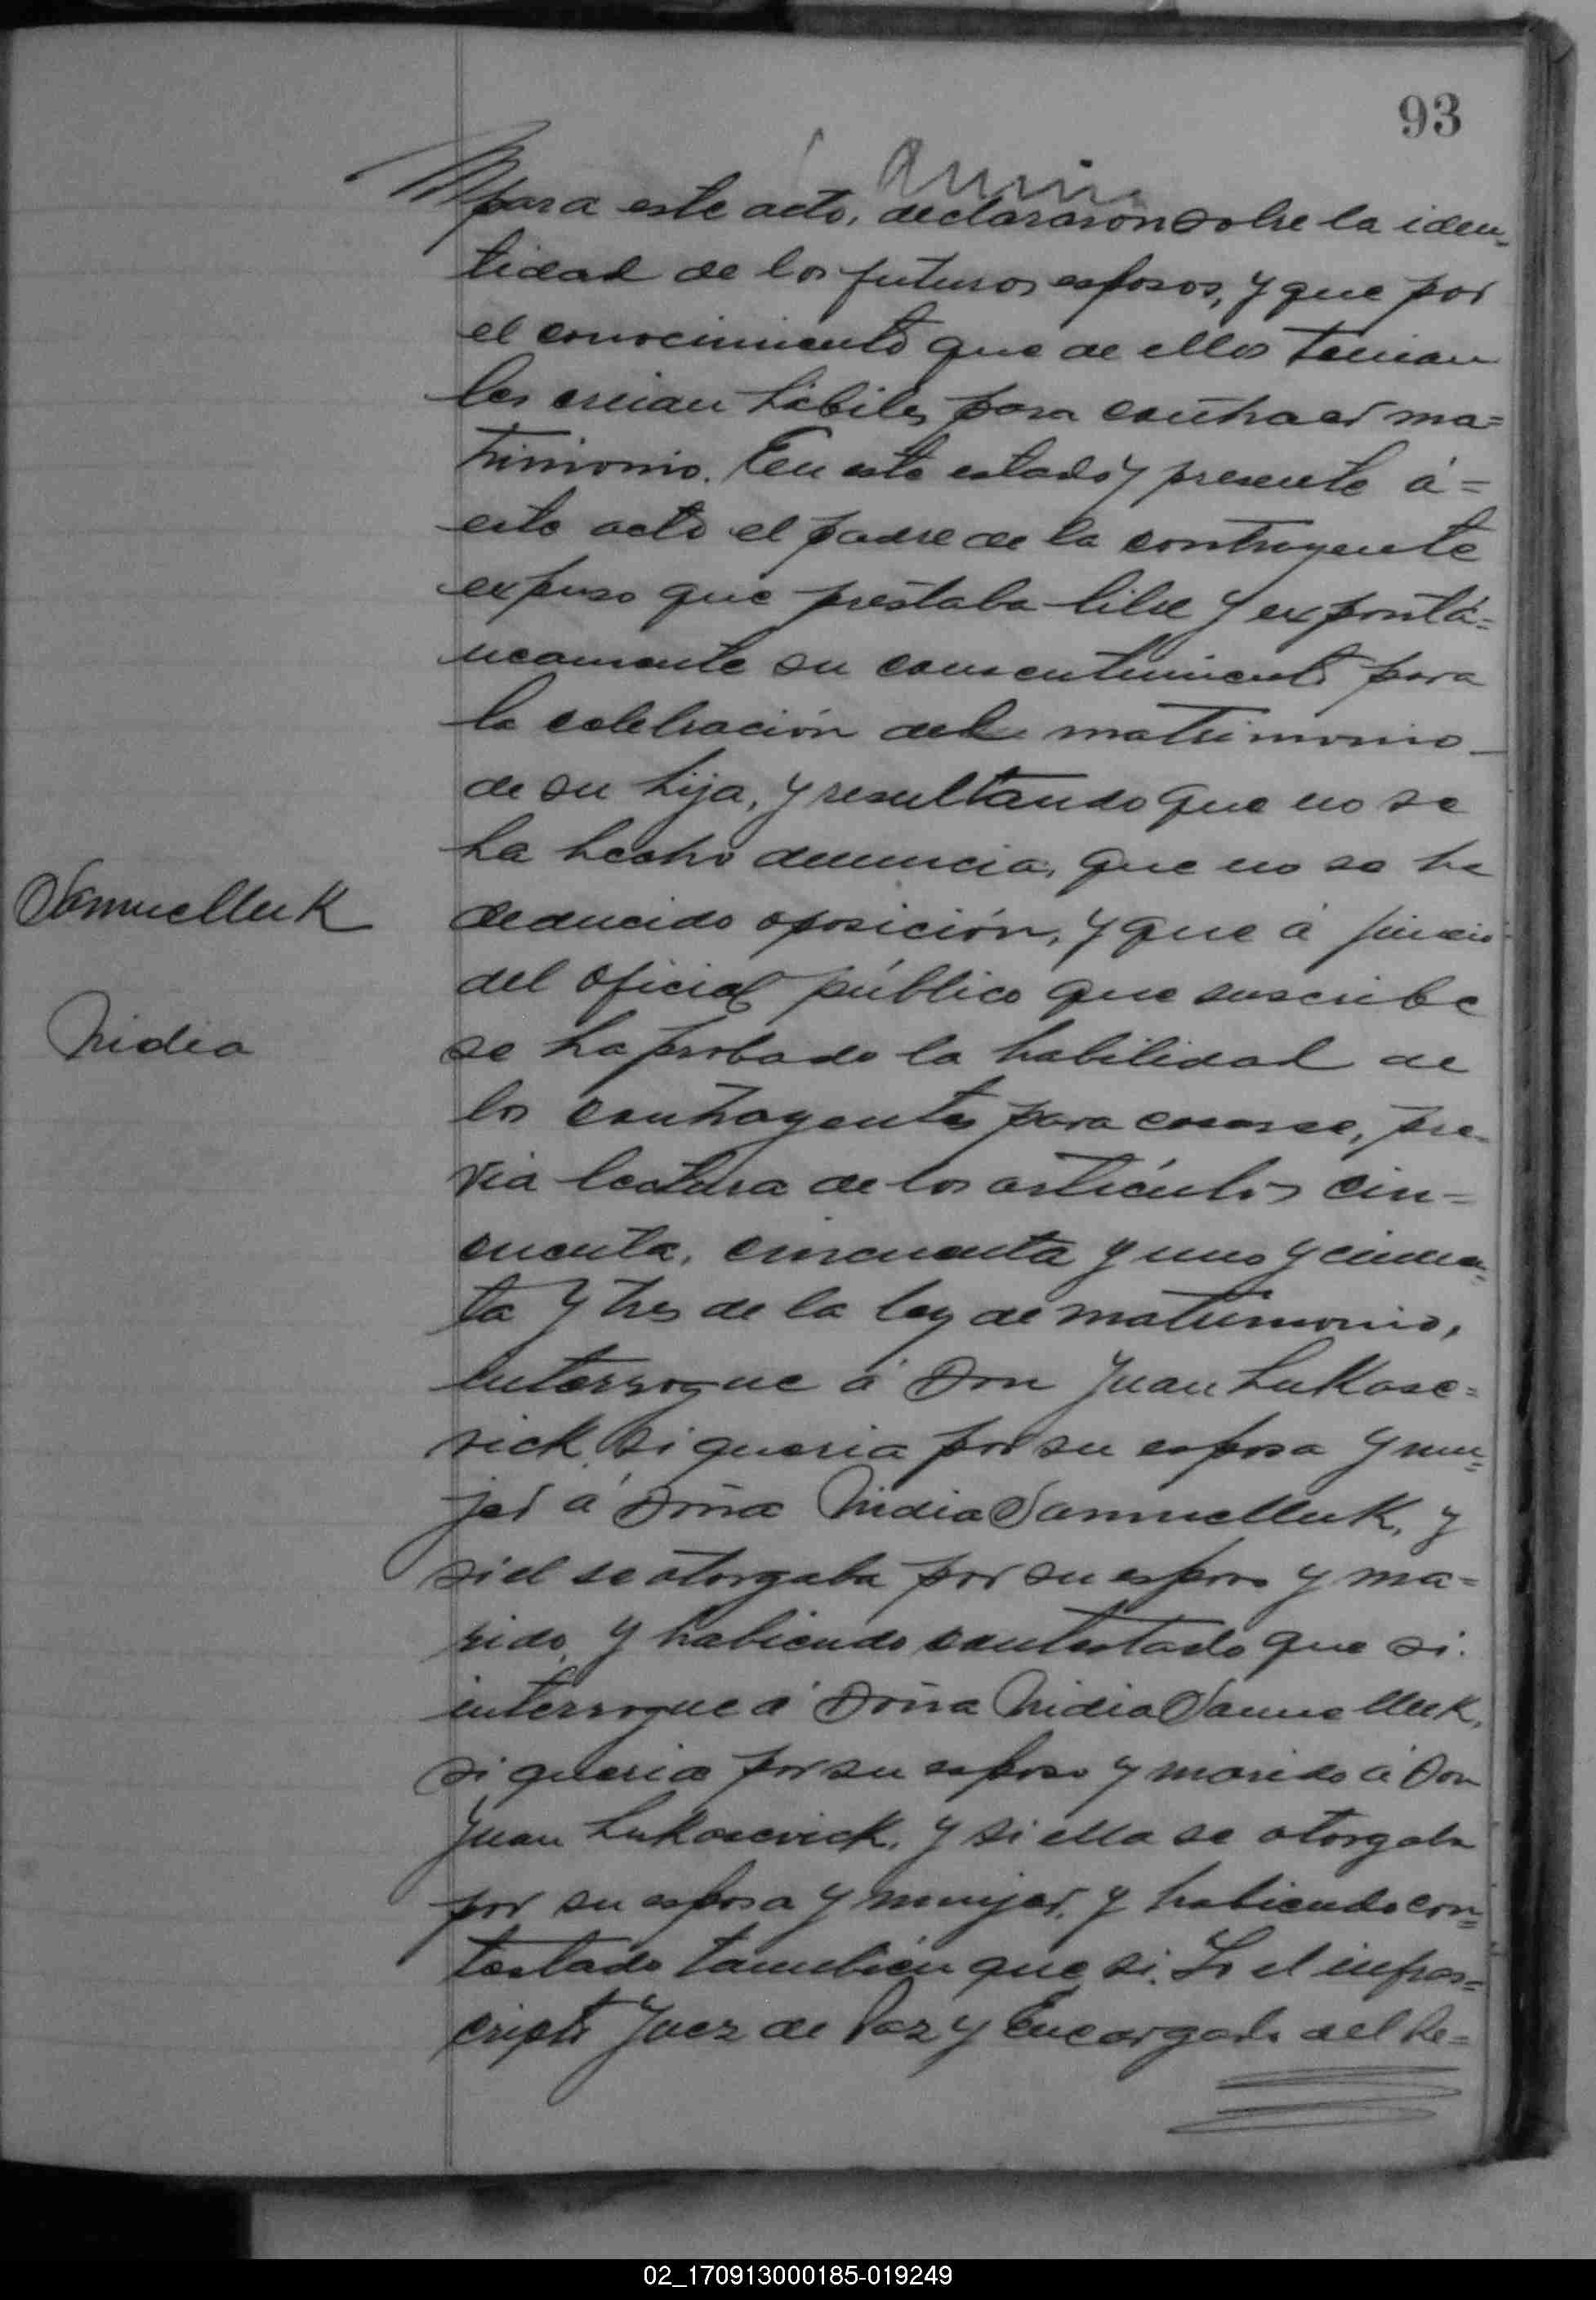 93
para este acto, declararon sobre la iden-
tidad de los futuros esposos, y que por
el conocimiento que de ellos tenian
los creian hábiles para contraer ma=
trimonio. En este estado y presente á=
este acto el padre de la contrayente
expuso que prestaba libre y expontá=
neamente su consentimiento para
la celebración del matrimonio_
de su hija, y resultando que no se
ha hecho denuncia, que no se ha
Samuelluk
deducido oposición, y que á juicio
del oficial público que suscribe
Nidia
se ha probado la habilidad de
los contrayentes para casarse, pre-
via lectura de los artículos cin=
cuenta, cincuenta y uno y cincuen=
ta y tres de la ley de matrimonio,
interrogue á Don Juan Lukase=
vick, si queria por su esposa y mu=
jer á Doña Nidia Samuelluk, y
si el se otorgaba por su esposo y ma=
rido, y habiendo contestado que si.
interrogue á Doña Nidia Samuelluk,
si queria por su esposo y marido á Don
Juan Lukasevick, y si ella se otorgaba
por su esposa y mujer, y habiendo con=
testado también que si. Yo el infras=
cripto Juez de Paz y Encargado del Re=
02_170913000185-019249